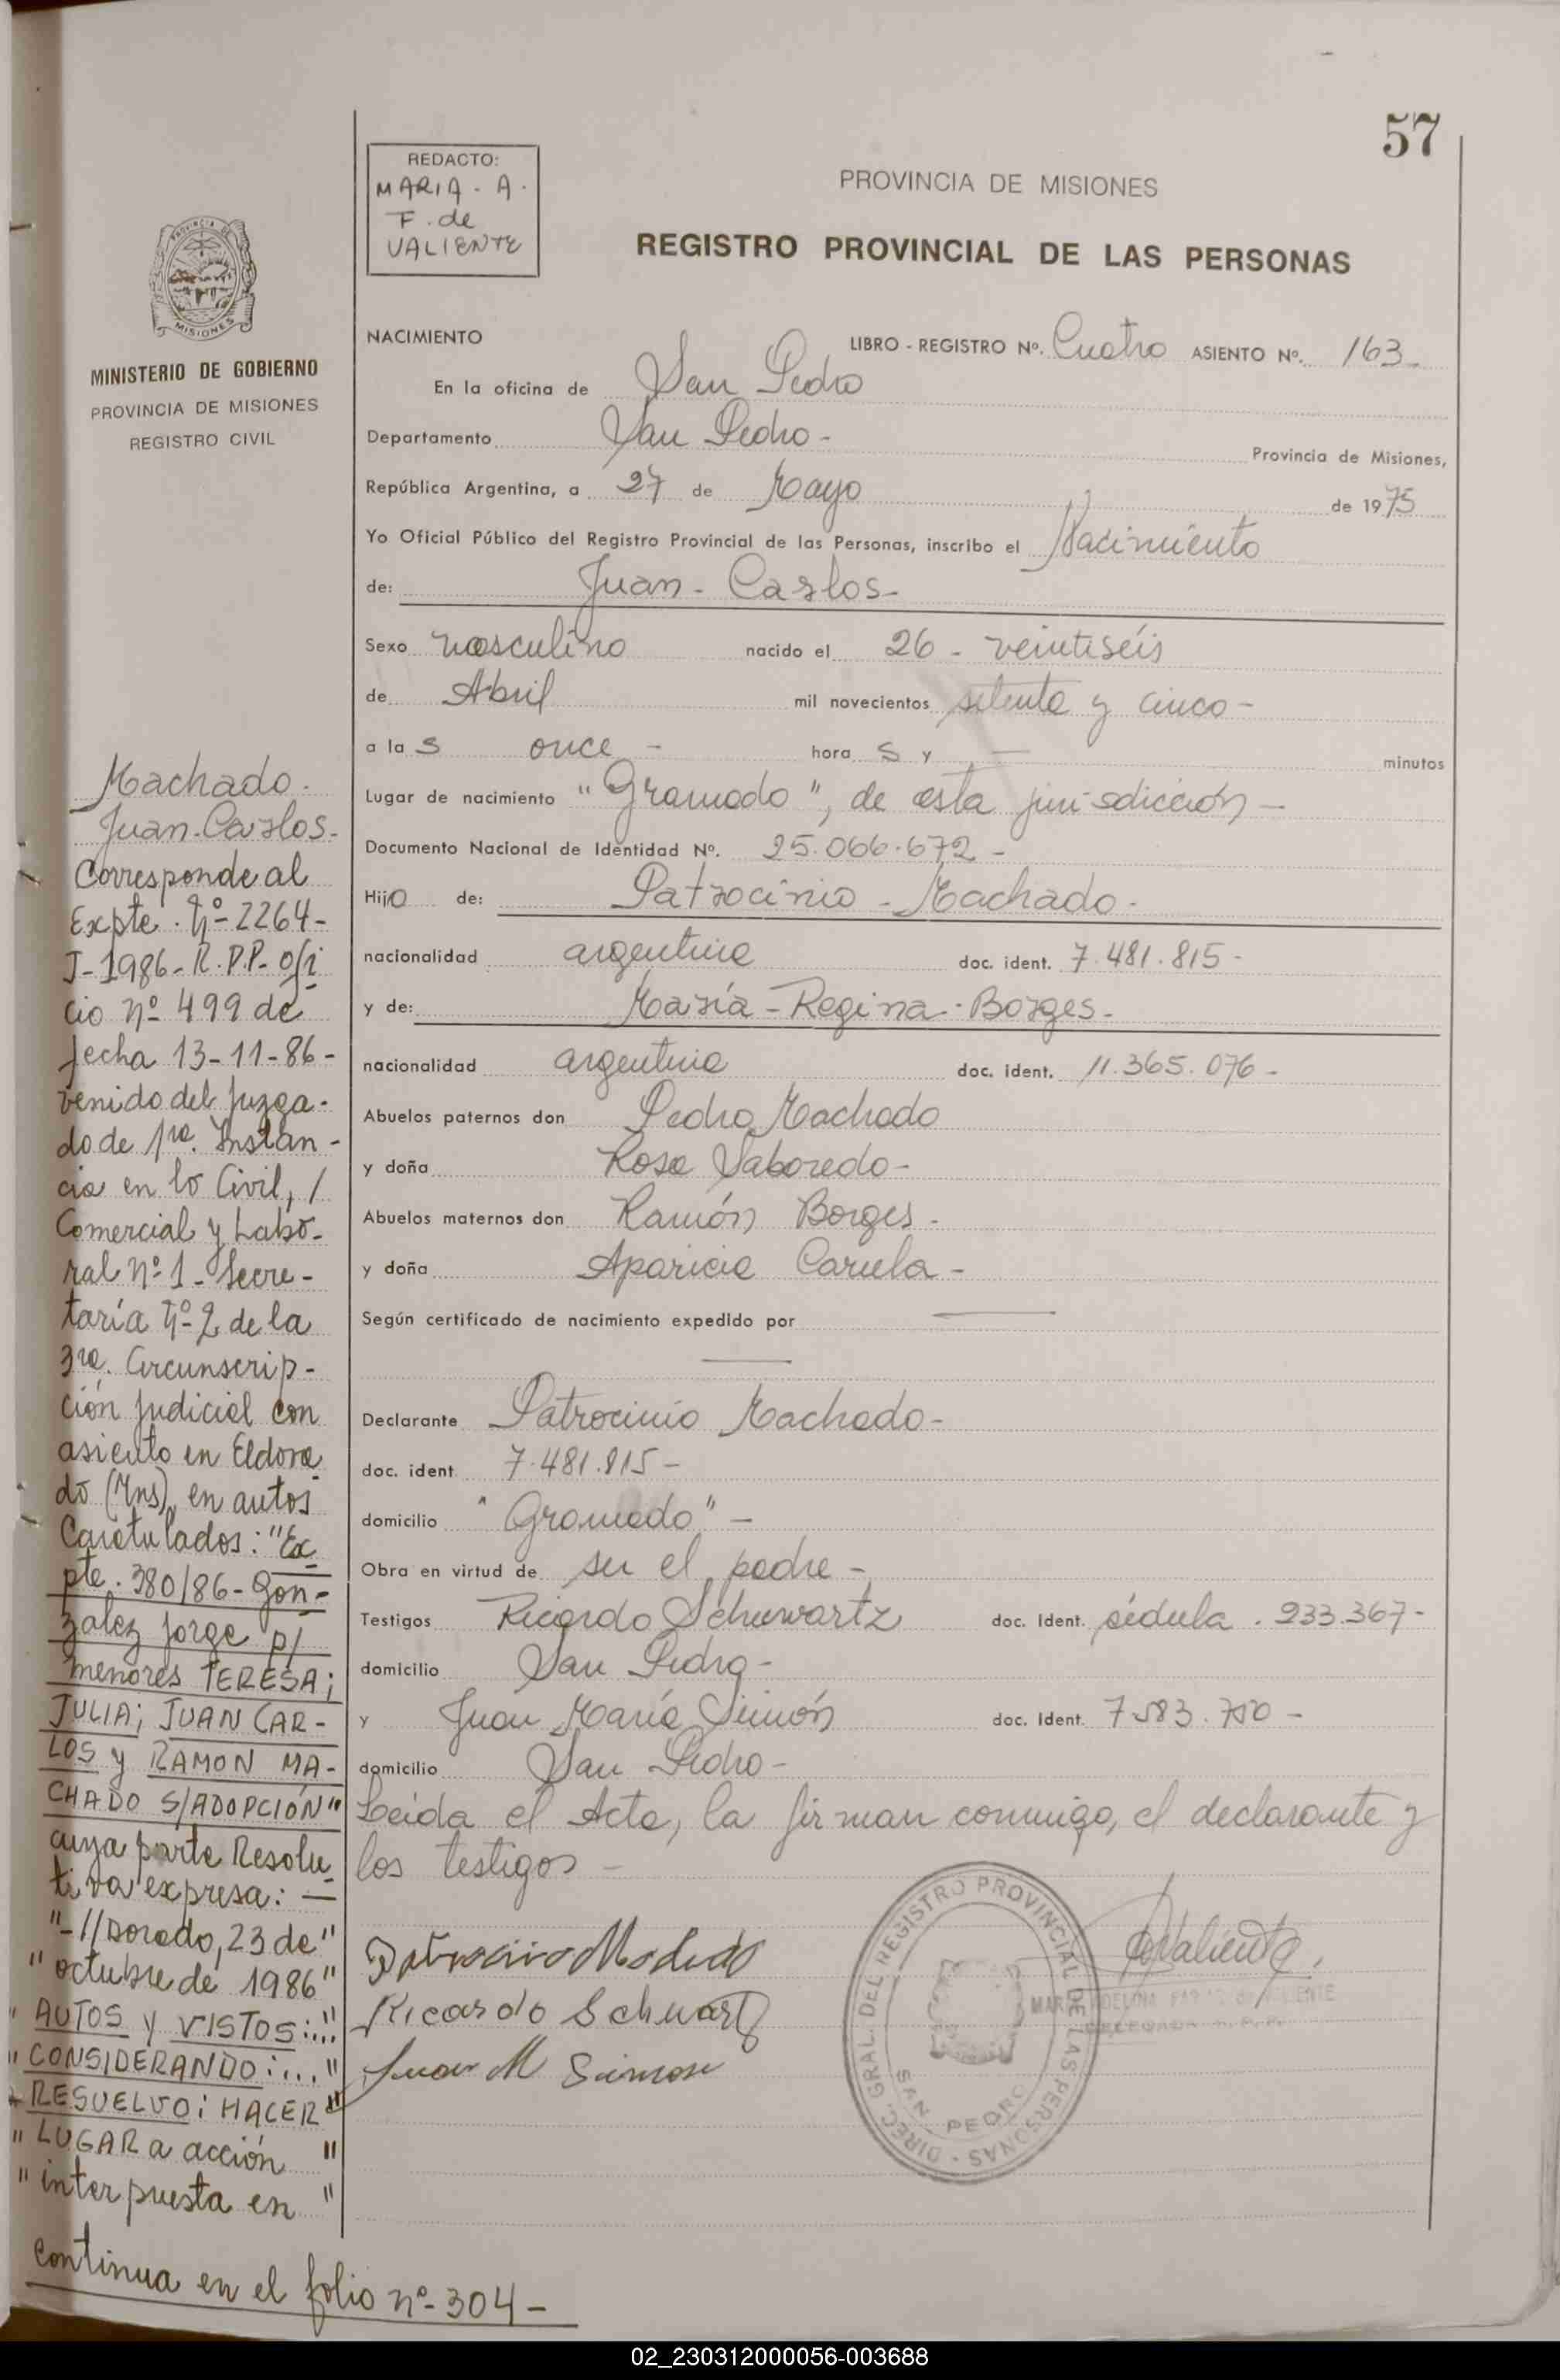 57
REDACTO:
MARIA - A.
F. de
VALIENTE
PROVINCIA DE MISIONES
REGISTRO PROVINCIAL DE LAS PERSONAS
PROVINCIA DE
MISIONES
MINISTERIO DE GOBIERNO
PROVINCIA DE MISIONES
REGISTRO CIVIL
NACIMIENTO LIBRO - REGISTRO Nº. Cuatro ASIENTO Nº. 163-
En la oficina de San Pedro
Departamento San Pedro - Provincia de Misiones,
República Argentina, a 27 de Mayo de 1975
Yo Oficial Público del Registro Provincial de las Personas, inscribo el Nacimiento
de: Juan - Carlos-
Sexo masculino nacido el 26 - veintiséis
de Abril mil novecientos setenta y cinco-
a las once - horas y — minutos
Lugar de nacimiento "Gramado", de esta jurisdicción-
Documento Nacional de Identidad Nº. 25.066.672-
Hijo de: Patrocinio - Machado-
nacionalidad argentina doc. ident. 7.481.815-
y de: María - Regina - Borges-
nacionalidad argentina doc. ident. 11.365.076-
Abuelos paternos don Pedro Machado
y doña Rosa Saboredo-
Abuelos maternos don Ramón Borges-
y doña Aparicia Cariela-
Según certificado de nacimiento expedido por ——
Declarante Patrocinio Machado-
doc. ident. 7.481.815-
domicilio "Gramado"-
Obra en virtud de ser el padre-
Testigos Ricardo Schuwartz doc. Ident. cédula. 233.367-
domicilio San Pedro-
y Juan María Simón doc. Ident. 7583.750-
domicilio San Pedro-
Leída el Acta, la firman conmigo, el declarante y
los testigos-
Patrocinio Machado
Ricardo Schwartz
Juan M Simon
AValiente
DIREC. GRAL. DEL REGISTRO PROVINCIAL DE LAS PERSONAS
SAN PEDRO
Machado-
Juan-Carlos-
Corresponde al
Expte. Nº-2264-
J-1986-R.P.P-ofi
cio nº 499 de
fecha 13-11-86-
venido del Juzga-
do de 1ra. Instan-
cia en lo Civil, /
Comercial y Labo-
ral nº 1-Secre-
taría Nº-2 de la
3ra. Circunscrip-
ción Judicial con
asiento en Eldora
do (Mns), en autos
Caratulados: "Ex
pte. 380/86-Gon-
zalez Jorge p/
menores TERESA;
JULIA; JUAN CAR-
LOS y RAMON MA-
CHADO S/ADOPCIÓN"
cuya parte Resolu
tiva expresa: —
"-//Dorado, 23 de"
"octubre de 1986"
"AUTOS y VISTOS:..."
"CONSIDERANDO:..."
"RESUELVO: HACER"
"LUGAR a acción"
"interpuesta en"
continua en el folio nº-304-
02_230312000056-003688